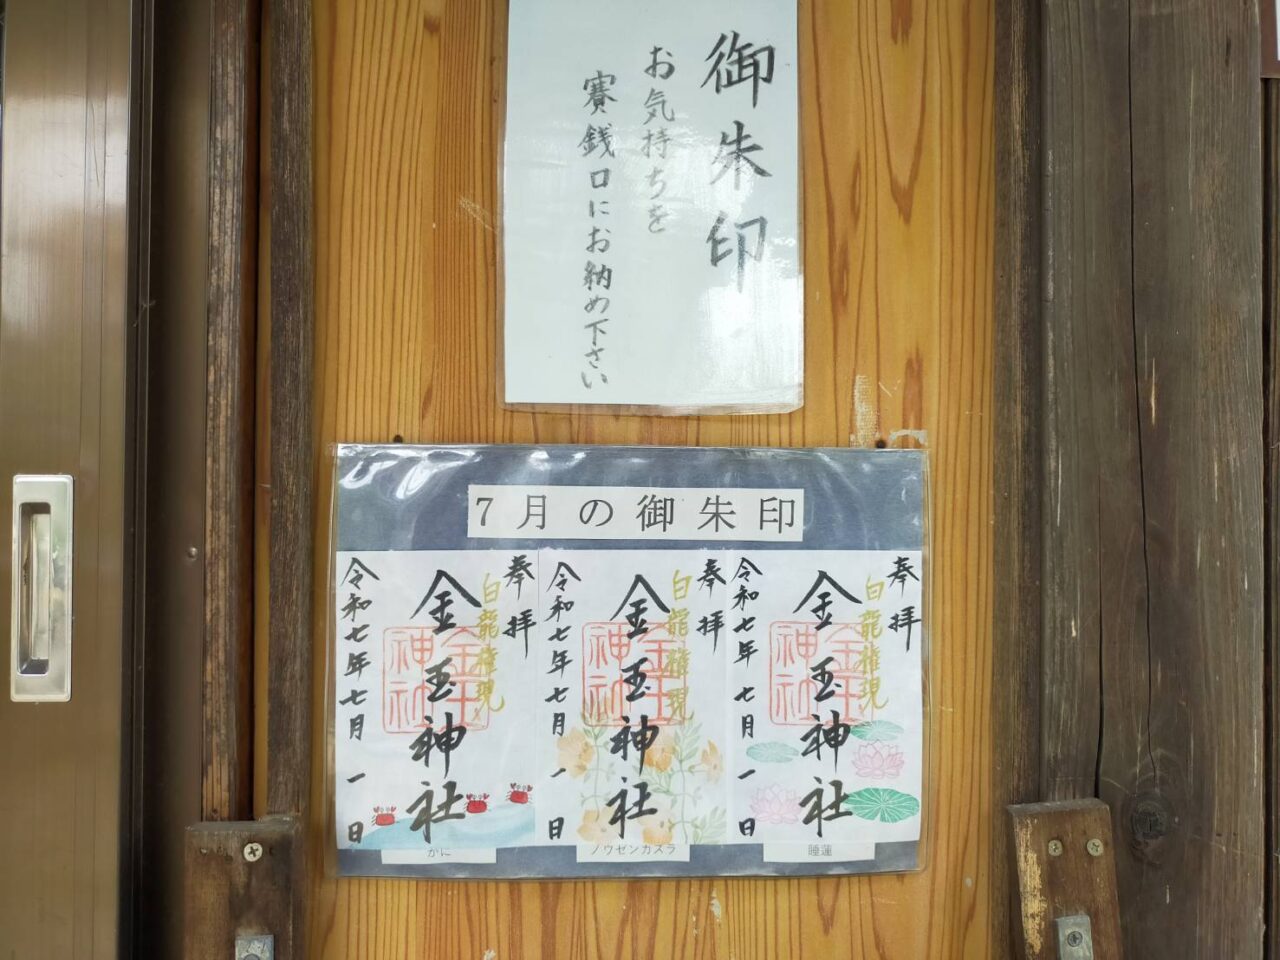 御朱印
お気持ちを
賽銭口にお納め下さい
7月の御朱印
奉拝
白龍権現
金玉神社
金玉神社
令和七年七月一日
かに
奉拝
白龍権現
金玉神社
金玉神社
令和七年七月一日
ノウゼンカズラ
奉拝
白龍権現
金玉神社
金玉神社
令和七年七月一日
睡蓮